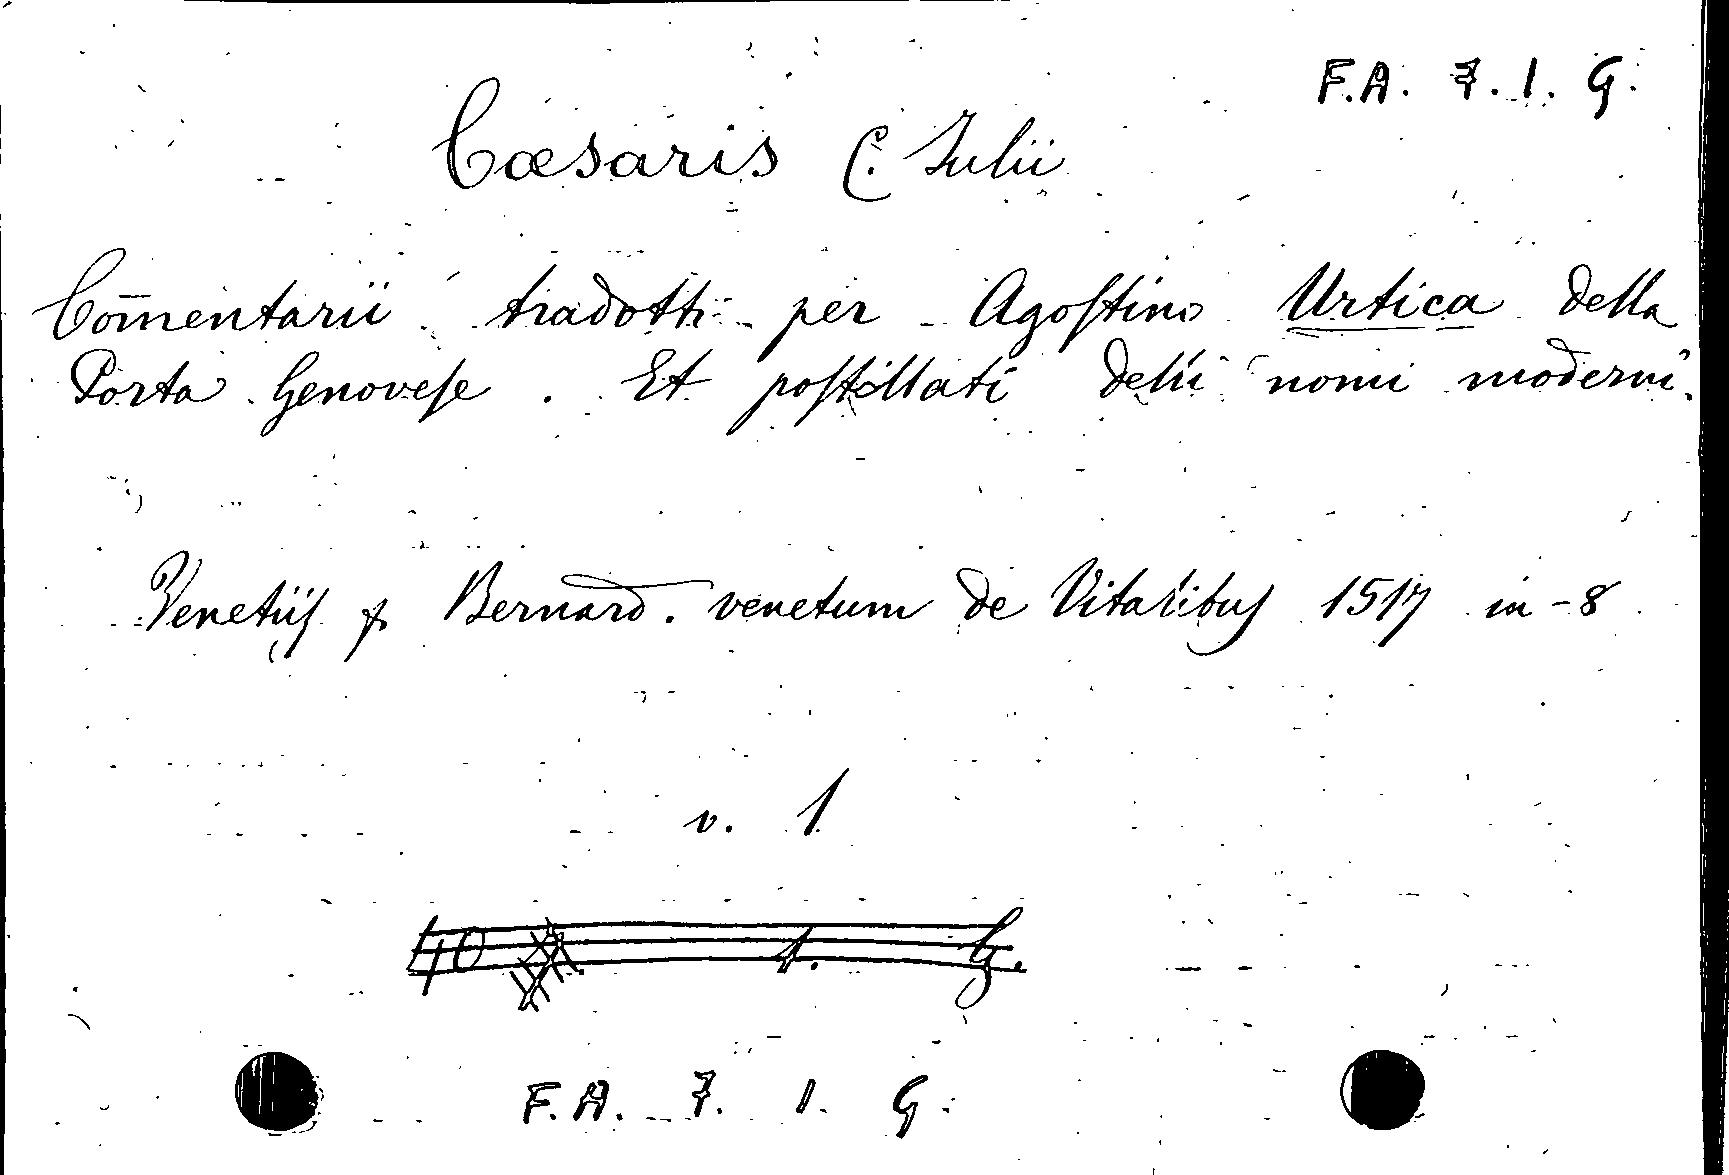 F.A. 7. 1. G.
Cæsaris C. Julii
Com̄entarii tradotti per Agostino Urtica della
Porta Genovese. Et postillati delii nomi moderni.
Venetiis p. Bernard. venetum de Vitalibus 1517 in-8
v. 1
40 1. G.
F.A. 7. 1. G.